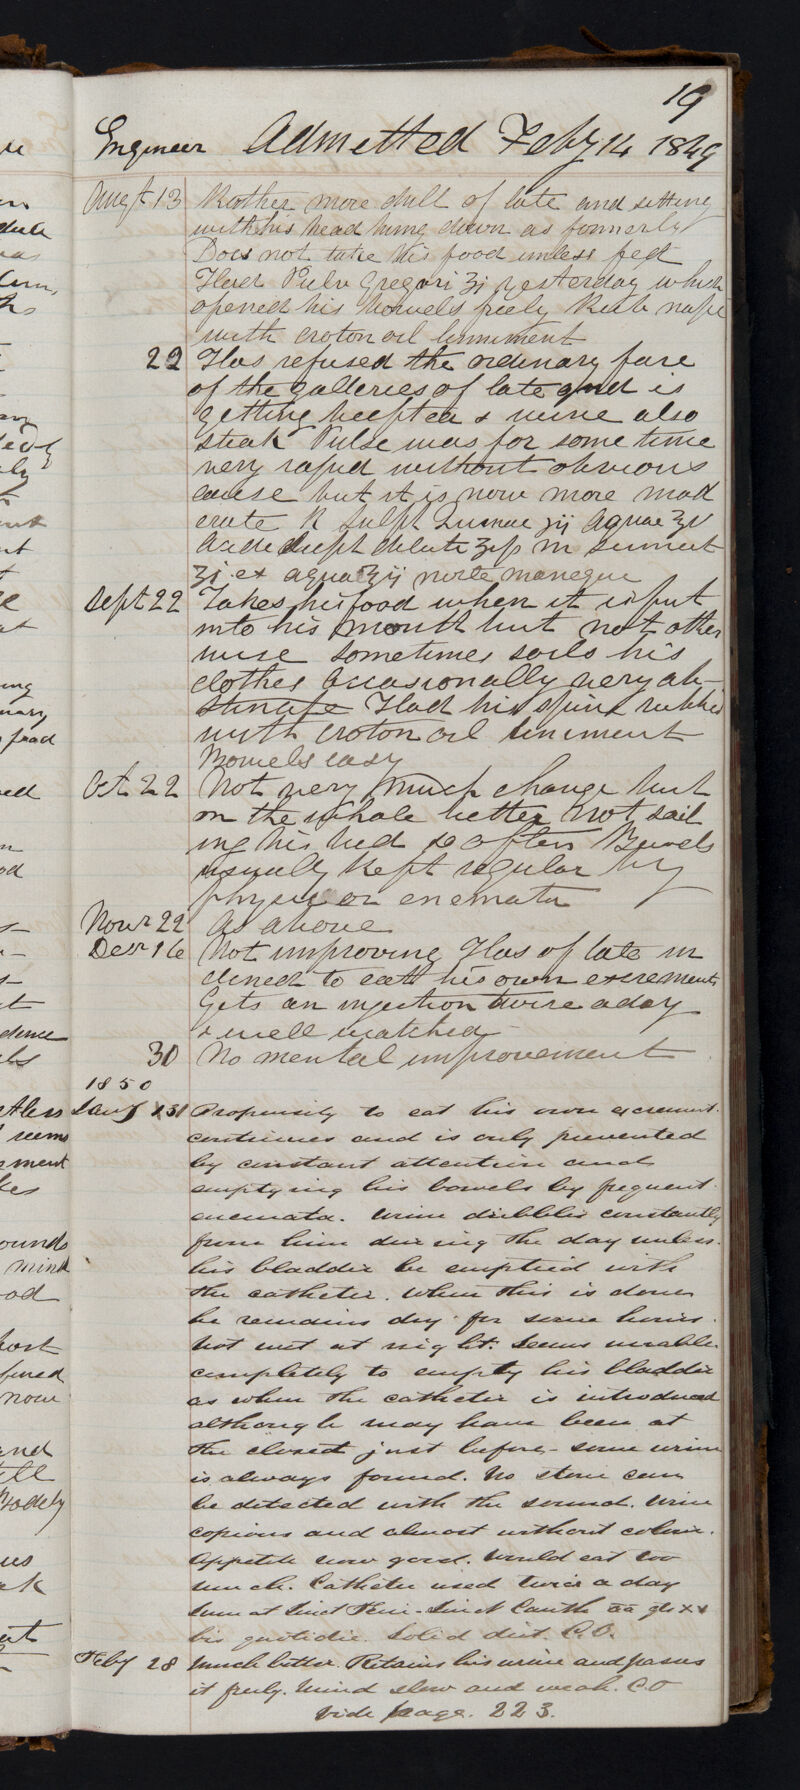 19
Engineer Admitted Feby 14 1849
Augt 13 Rather more dull of late and sitting
with his head hung down as formerly
Does not take his food unless fed
Had Pulv Gregori ʒj yesterday which
opened his bowels freely Rub nape
with croton oil liniment
22 Has refused the ordinary fare
of the galleries of late and is
getting beef tea & wine also
steak Pulse was for some time
very rapid without obvious
cause but it is now more mod
erate R Sulph Quinae ʒij Aquae ℥v
Acid Sulph dilute ʒss m Sumat
ʒj ex aqua ℥ij nocte maneque
Sept 22 Takes his food when it is put
into his mouth but not other
wise sometimes soils his
clothes Occasionally very ob-
stinate Had his spine rubbed
with croton oil liniment
Bowels easy
Oct 22 Not very much change but
on the whole better not soil
ing his bed so often Bowels
usually kept regular by
physic or enemata
Novr 22 As above
Decr 16 Not improving Has of late in
clined to eat his own excrements
Gets an injection twice a day
& well watched
30 No mental improvement
1850
Jany 31 Propensity to eat his own excrement.
continues and is only prevented
by constant attention and
emptying his bowels by frequent
enemata. Urine dribbles constantly
from him during the day unless
his bladder be emptied with
the catheter. When this is done
he remains dry for some hours.
Not wet at night. Seems unable
completely to empty his bladder
as when the catheter is introduced
although may have been at
the closet just before - some urine
is always found. No stone can
be detected with the sound. Urine
copious and almost without colour.
Appetite now good. Would eat too
much. Catheter used twice a day
Sumat Tinct Ferri - Tinct Canth āā gtt xx
bis quotidie. Solid diet. C.O.
Feby 28 Much better. Retains his urine and passes
it freely. Mind slow and weak. C.O
Vide page. 223.